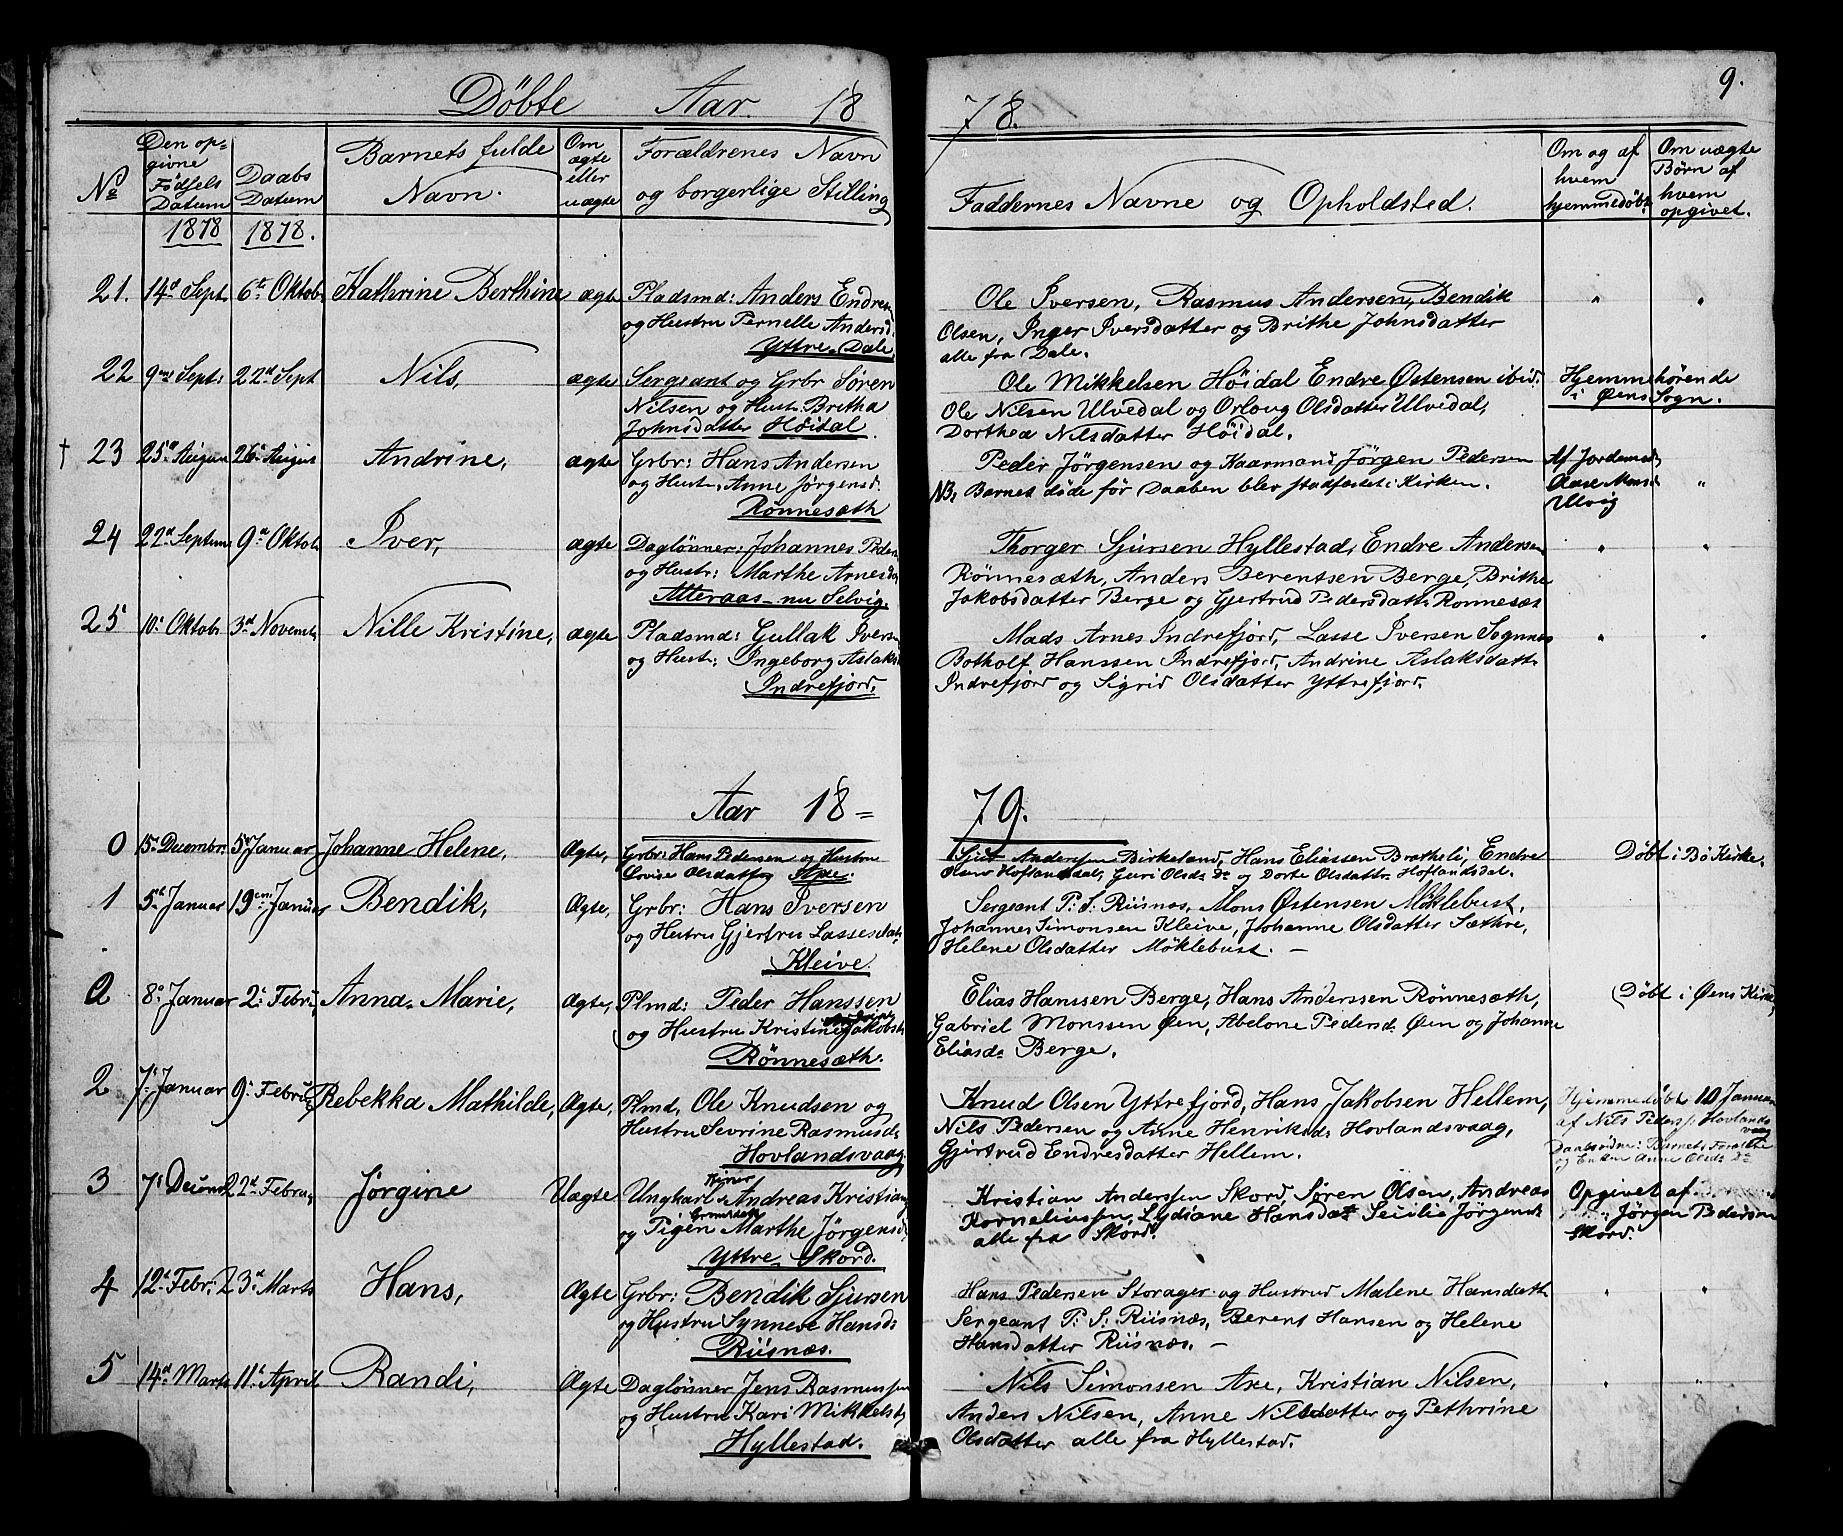 Døbte Aar 18 78. 9.
No
Den op=
givne
Fødsels
Datum
1878
Daabs
Datum
1878.
Barnets fulde
Navn.
Om
ægte
eller
uægte
Forældrenes Navn
og borgerlige Stilling
Faddernes Navne og Opholdsted.
Om og af
hvem
hjemmedøbt
Om uægte
Børn af
hvem
opgivet.
21. 14d Sept 6te Oktob Kathrine Berthine ægte Pladsmd: Anders Endres
og Hustru Pernelle Andersd.
Yttre Dale.
Ole Iversen, Rasmus Andersen, Bendik
Olsen, Inger Iversdatter og Brithe Johnsdatter
alle fra Dale.
" "
22 9me Sept: 22d Sept Nils, ægte Sergeant og Grbr Søren
Nilsen og Hust. Britha
Johnsdatter Höidal.
Ole Mikkelsen Höidal Endre Østensen ibid.
Ole Nilsen Ulvedal og Orloug Olsdatter Ulvedal,
Dorthea Nilsdatter Höidal.
Hjemmehörende
i Øens Sogn.
† 23 25d Augus 26. Augus Andrine, ægte Grbr: Hans Andersen
og Hustr. Anne Jørgensd.
Rönnesæth
Peder Jørgensen og Kaarmand Jørgen Pedersen
NB. Barnet døde før Daaben blev stadfæstet i Kirken.
Af Jordemod.
Aase Mons
Ulvig
"
24 22d Septem 9d Oktob Iver, ægte Daglönner: Johannes Peder
og Hustr: Marthe Arnesd.
Atteraas - nu Selvig.
Thorger Sjursen Hyllestad, Endre Andersen
Rönnesæth, Anders Berentsen Berge, Brithe
Jakobsdatter Berge og Gjertrud Pedersdatt. Ronnesæt
" "
25 10. Oktob 3d Novemb Nille Kristine, ægte Pladsmd: Gullak Ivers
og Hust. Ingeborg Aslaks
Indrefjord.
Mads Arnes Indrefjord, Lasse Iversen Sognnes
Botholf Hanssen Indrefjord, Andrine Aslaksdatt.
Indrefjord og Sigrid Olsdatter Yttrefjord.
" "
Aar 18= 79.
0 15. Decembr: 5. Januar Johanne Helene, Ægte, Grbr: Hans Pedersen og Hustru
Lovise Olsdatter
Anderssen Birkeland, Hans Eliassen Bratheli, Endre
Hoflandsdal, Guri Olsd. do og Dorte Olsdatt. Hoflandsdal.
Døbt i Bö Kirke.
1 5t Januar 19en Januar Bendik, Ægte, Grbr: Hans Iversen
og Hustru Gjertru Lassesdat,
Kleive.
Sergeant P. S. Riisnæs, Mons Østensen Möklebust,
Johannes Simonsen Kleive, Johanne Olsdatter Sæthre,
Helene Olsdatter Möklebust. —
0 8. Januar 2. Febru Anna Marie, Ægte, Plmd: Peder Hanssen
og Hustru Kristine Jakobst
Rönnesæth.
Elias Hanssen Berge, Hans Anderssen Rönnesæth,
Gabriel Monssen Øen, Abelone Pedersd. Øen og Johanne
Eliasd. Berge.
Døbt i Øens Kirke,
2 7. Januar 9. Febru Rebekka Mathilde, Ægte, Plmd. Ole Knudsen og
Hustru Sevrine Rasmusd.
Hovlandsvaag
Knud Olsen Yttrefjord, Hans Jakobsen Hellem,
Nils Pedersen og Anne Henriksd. Hovlandsvaag,
Gjertrud Endresdatter Hellem.
Hjemmedøbt 10 Januar
af Nils Peders. Hovlands
vaag
Daabsvidne: Barnets Forældre
og Enken Anne Olsd. do
3 7. Decemb 2d Februa Jørgine Uægte Ungkarl Andreas Kristian
og Pigen Marthe Jørgensd,
Yttre Skord.
Kristian Anderssen Skord, Søren Olsen, Andreas
Korneliussen, Lydiane Hansdat Secilie Jörgensd.
alle fra Skord.
Opgivet af
Jørgen Pedersen
Skord.
4 12t Febr: 23d Marts Hans, Ægte Grbr: Bendik Sjursen
og Hustru Synneve Hansd:
Riisnæs.
Hans Pedersen Storager og Hustrud Malene Hansdatt.
Sergeant P. S. Riisnæs, Berent Hansen og Helene
Hansdatter Riisnæs. —
" "
5 14d Marts 11t April Randi, Ægte Daglønner Jens Rasmussen
og Hustru Kari Mikkelst
Hyllestad.
Nils Simonsen Axe, Kristian Nilsen,
Anders Nilsen, Anne Nilsdatter og Pethrine
Olsdatter alle fra Hyllestad.
" "